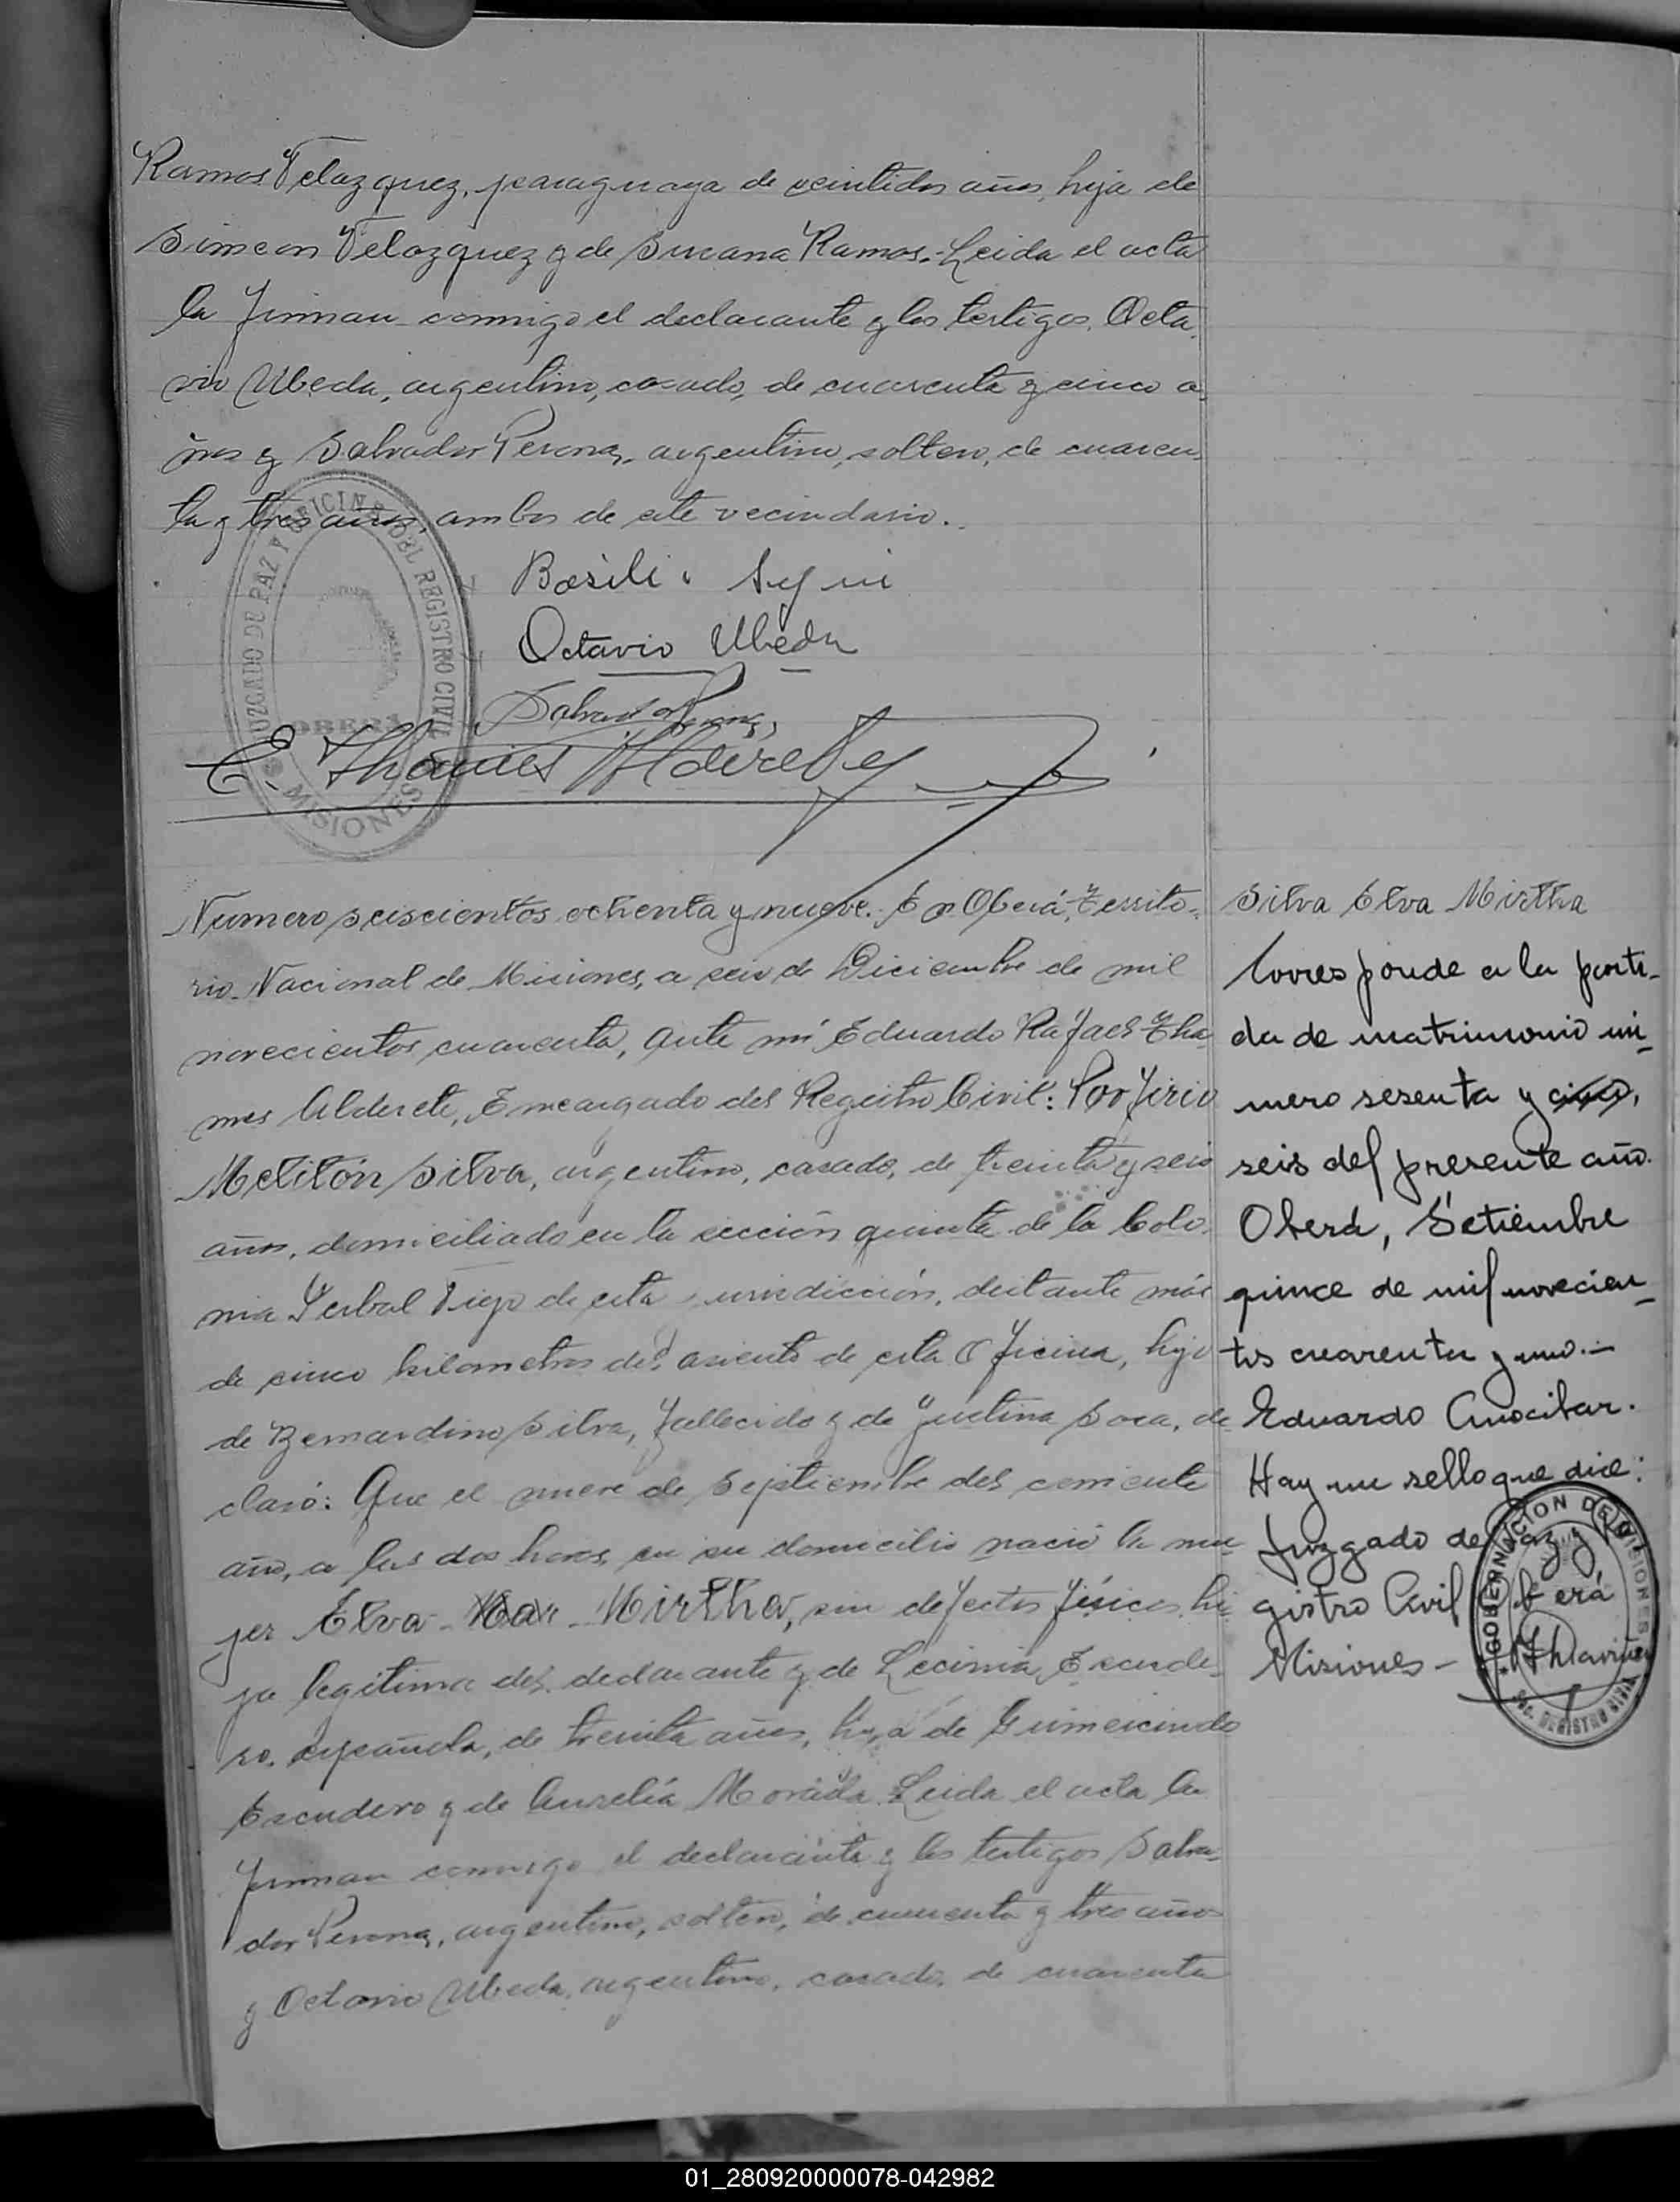 Ramos Velazquez, paraguaya de veintidos años, hija de
Simeon Velazquez y de Susana Ramos.- Leida el acta
la firman conmigo el declarante y los testigos, Octa-
vio Ubeda, argentino, casado, de cuarenta y cinco a-
ños y Salvador Perona, argentino, soltero, de cuaren-
ta y tres años, ambos de este vecindario.
JUZGADO DE PAZ Y OFICINA DEL REGISTRO CIVIL
OBERA
MISIONES
Basili
Octavio Ubeda
Salvador Perona
E. Thames Alderete
Numero seiscientos ochenta y nueve. En Oberá, Territo-
rio Nacional de Misiones, a seis de Diciembre de mil
novecientos cuarenta, ante mí Eduardo Rafael Tha-
mes Alderete, Encargado del Registro Civil: Porfirio
Melitón Silva, argentino, casado, de treinta y seis
años, domiciliado en la sección quinta de la Colo-
nia Yerbal Viejo de esta jurisdicción, distante más
de cinco kilometros del asiento de esta Oficina, hijo
de Bernardino Silva, fallecido y de Justina Sosa, de-
claró: Que el nueve de Septiembre del corriente
año, a las dos horas, en su domicilio nació la mu-
jer Elva Mirtha, sin defectos físicos, hi-
ja legitima del declarante y de Lecinia Escude-
ro, española, de treinta años, hija de Gumercindo
Escudero y de Aurelia Leida el acta la
firman conmigo el declarante y los testigos Salva-
dor Perona, argentino, soltero, de cuarenta y tres años
y Octavio Ubeda, argentino, casado, de cuarenta
Silva Elva Mirtha
Corresponde a la parti-
da de matrimonio nú-
mero sesenta y cinco,
seis del presente año.
Oberá, Setiembre
quince de mil novecien-
tos cuarenta y uno.-
Eduardo Amocibar.
Hay un sello que dice:
Juzgado de Paz y Re-
gistro Civil Oberá
Misiones -
GOBERNACION DE MISIONES
REGISTRO CIVIL
01_280920000078-042982